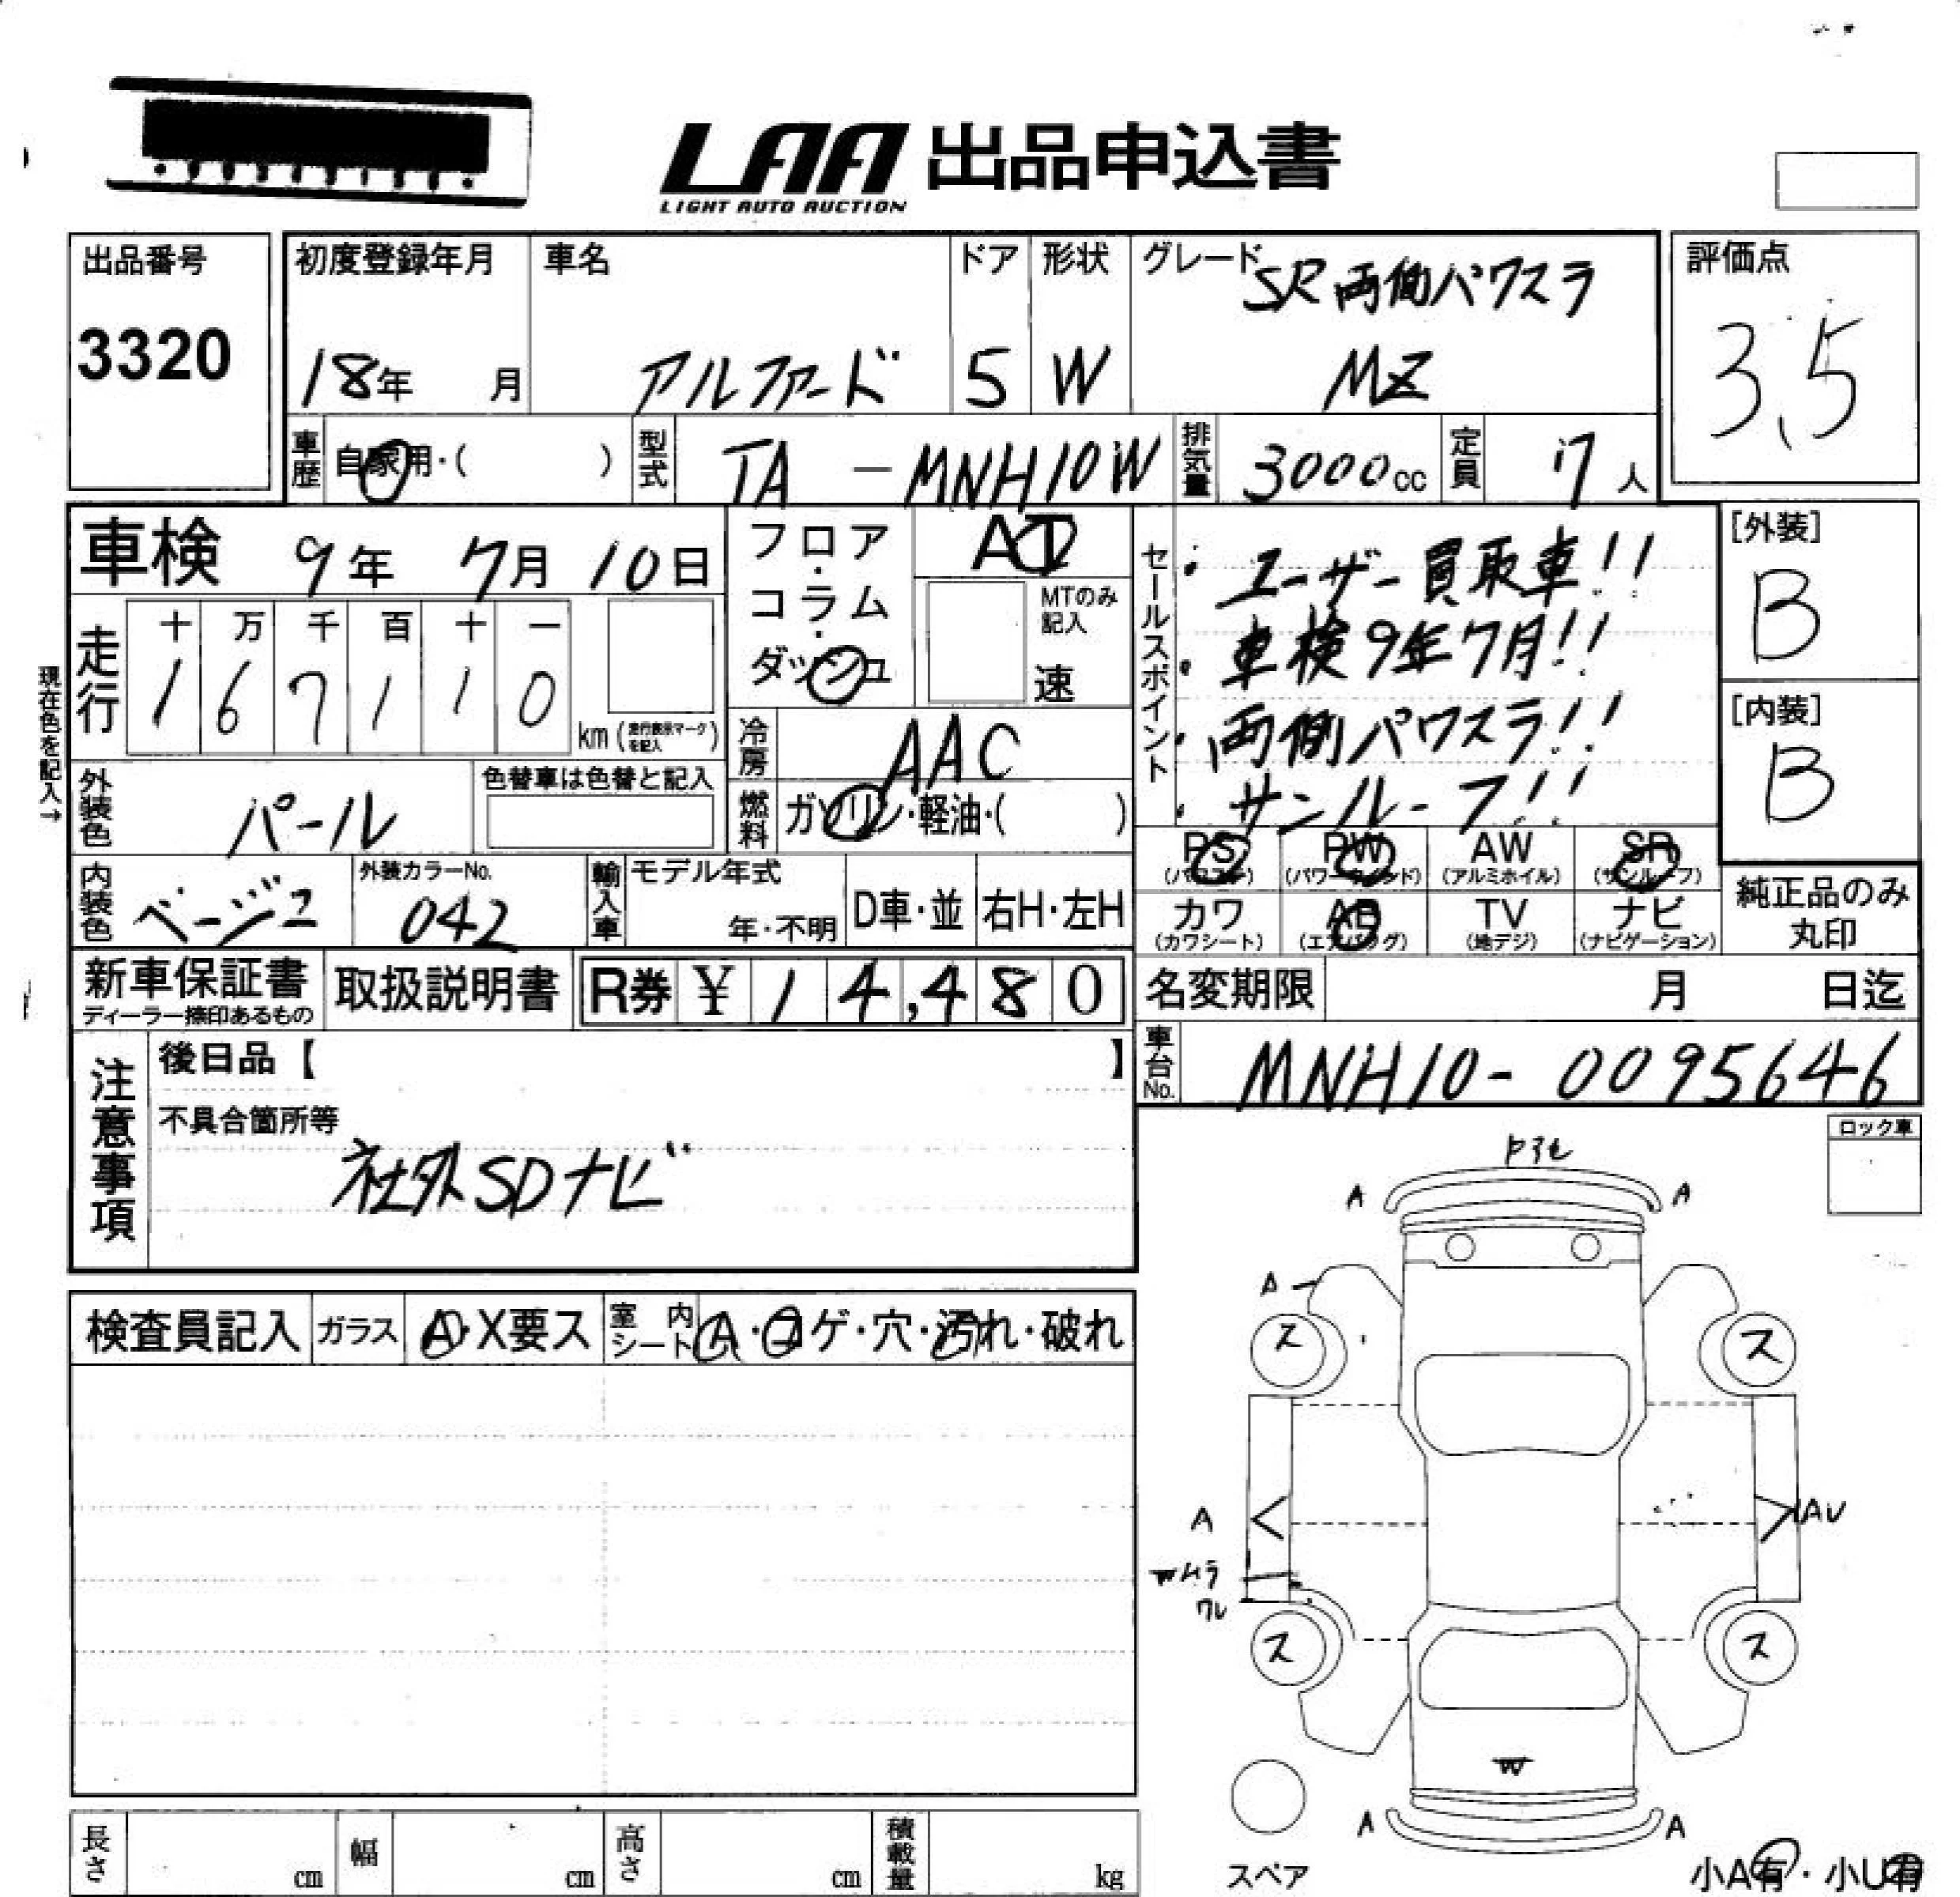 LAA 出品申込書
LIGHT AUTO AUCTION
出品番号
3320
初度登録年月
18年 月
車名
アルファード
ドア
5
形状
W
グレード
SR 両側パワスラ
MZ
評価点
3.5
車歴
自家用・( )
型式
TA - MNH10W
排気量
3000cc
定員
7人
車検 9年 7月 10日
フロア・コラム・ダッシュ
AT
MTのみ記入
速
セールスポイント
・ユーザー買取車!!
・車検9年7月!!
・両側パワスラ!!
・サンルーフ!!
[外装]
B
[内装]
B
現在色を記入→
走行
十 万 千 百 十 一
1 6 7 1 1 0
km(走行表示マークを記入)
冷房
AAC
外装色
パール
色替車は色替と記入
燃料
ガソリン・軽油・( )
PS
(パワステ)
PW
(パワーウインド)
AW
(アルミホイル)
SR
(サンルーフ)
カワ
(カワシート)
AB
(エアバッグ)
TV
(地デジ)
ナビ
(ナビゲーション)
純正品のみ
丸印
内装色
ベージュ
外装カラーNo.
042
輸入車
モデル年式
年・不明
D車・並
右H・左H
新車保証書
ディーラー捺印あるもの
取扱説明書
R券 ¥14,480
名変期限 月 日迄
車台No.
MNH10-0095646
注意事項
後日品【 】
不具合箇所等
社外SDナビ
ロック車
検査員記入
ガラス
A・X要ス
室内シート
A・コゲ・穴・汚れ・破れ
A A
A
ス ス
A AU
Wムラ
ワレ
ス ス
W
A A
スペア
小A有・小U有
長さ cm
幅 cm
高さ cm
積載量 kg